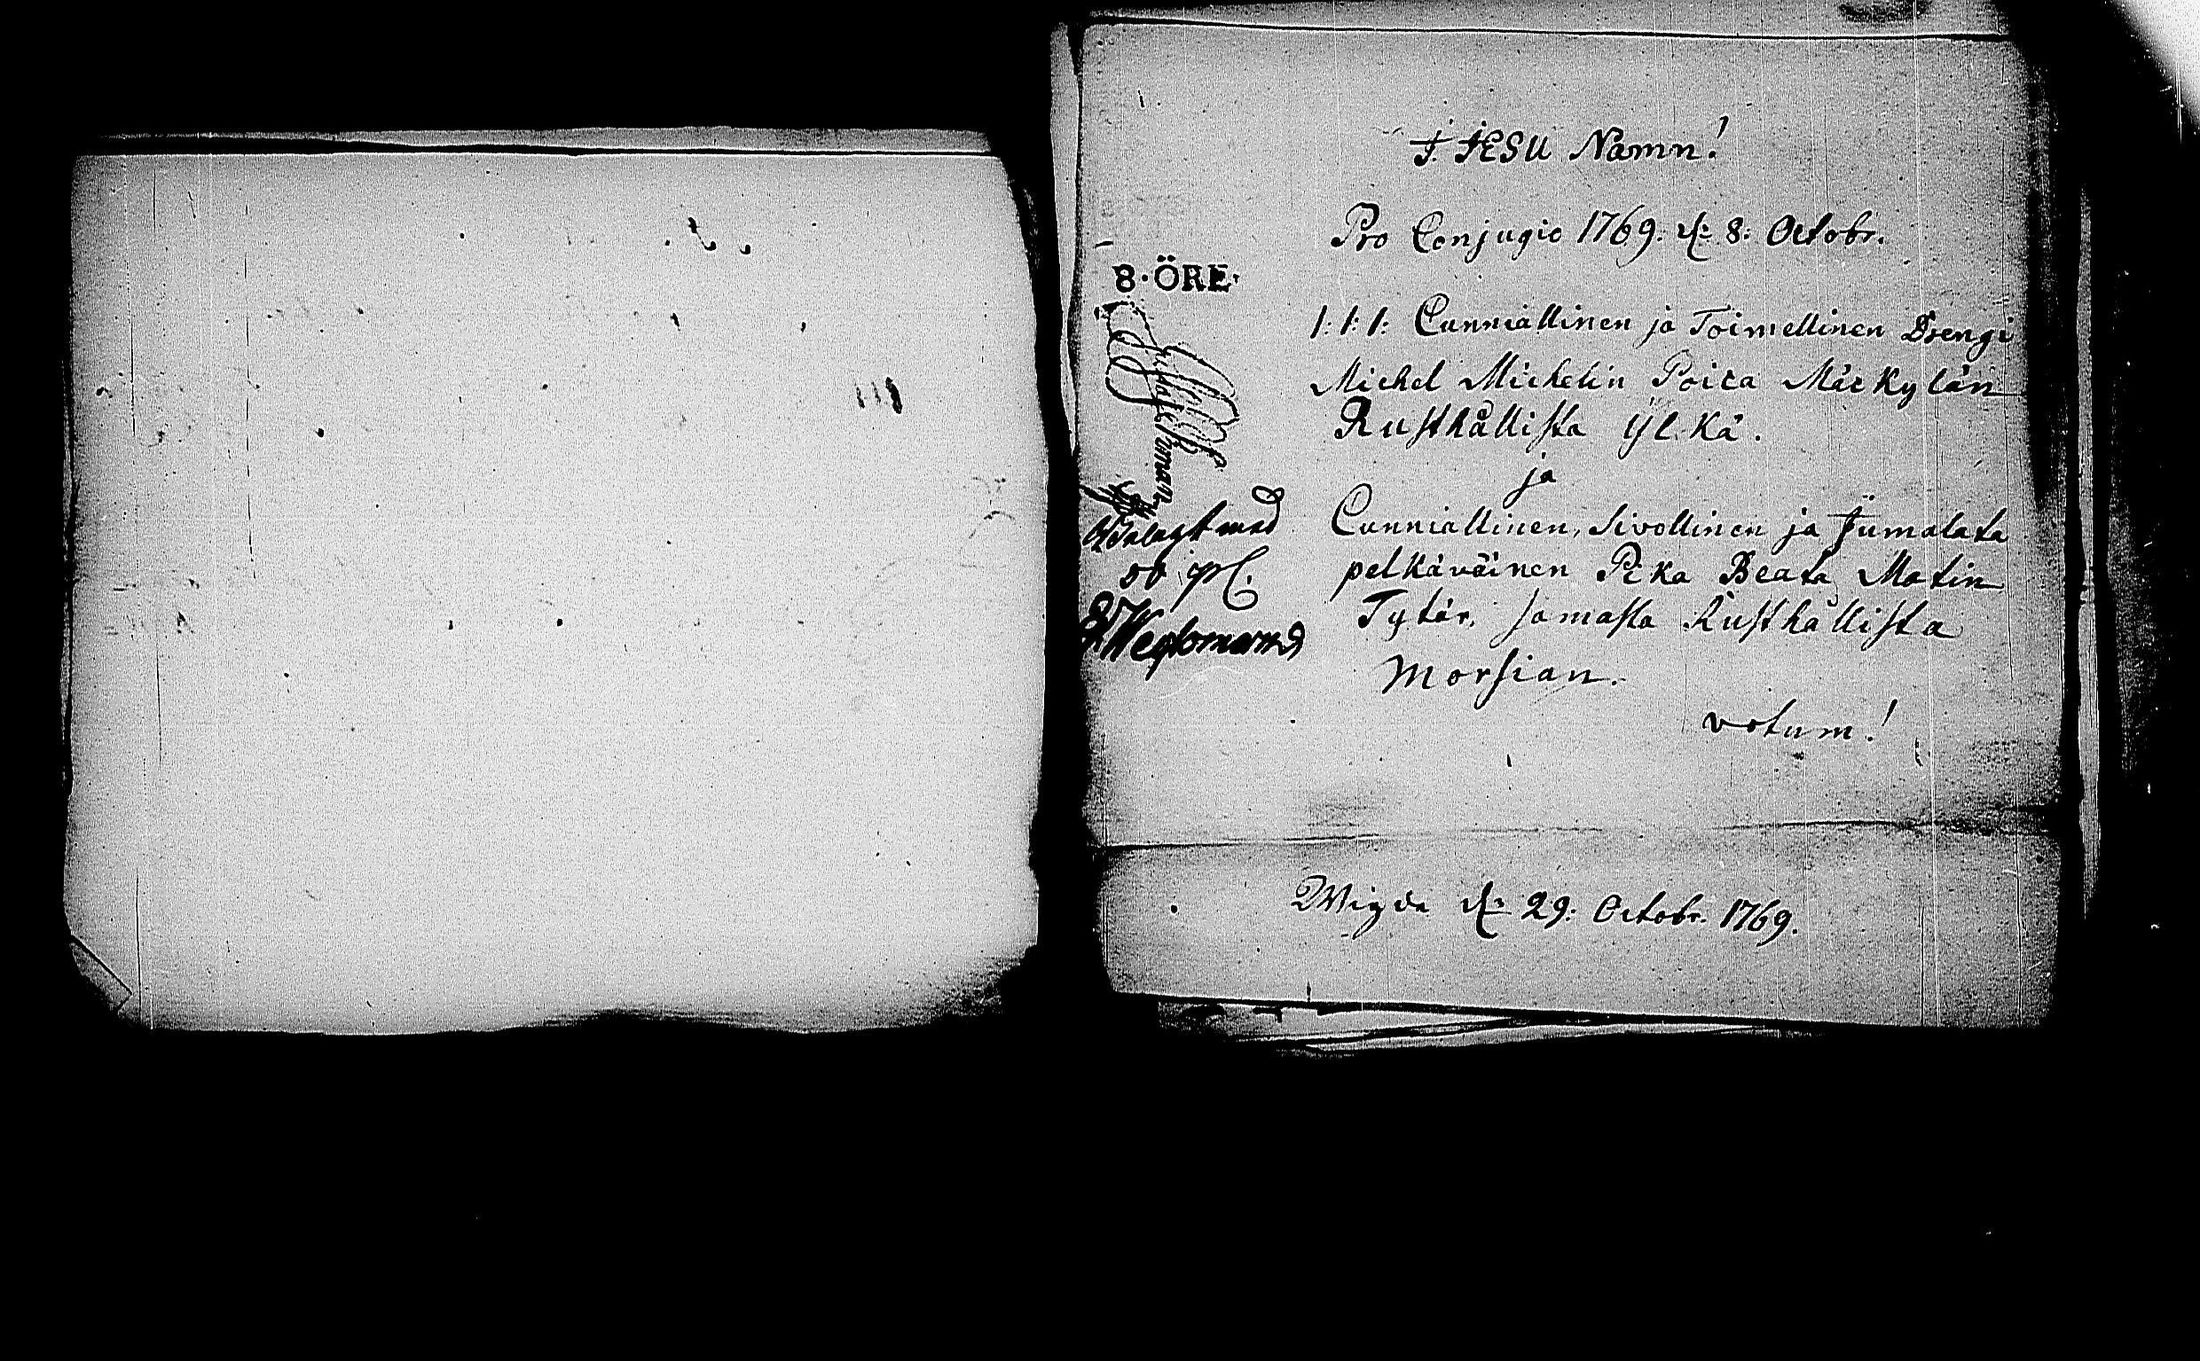 J. JESU Namn!
Pro Conjugio 1769. d: 8: Octobr.
8·ÖRE·
1: 1: 1: Cunniallinen ja Toimellinen Drengi
Michel Michelin Poica Mäckylän
Rusthållista Ylkä.
ja
Cunniallinen, Sivollinen ja Jumalata
pelkäväinen Pika Beata Matin
Tytär, samasta Rusthållista
Morsian.
votum!
med
Wigde d: 29: Octobr. 1769.